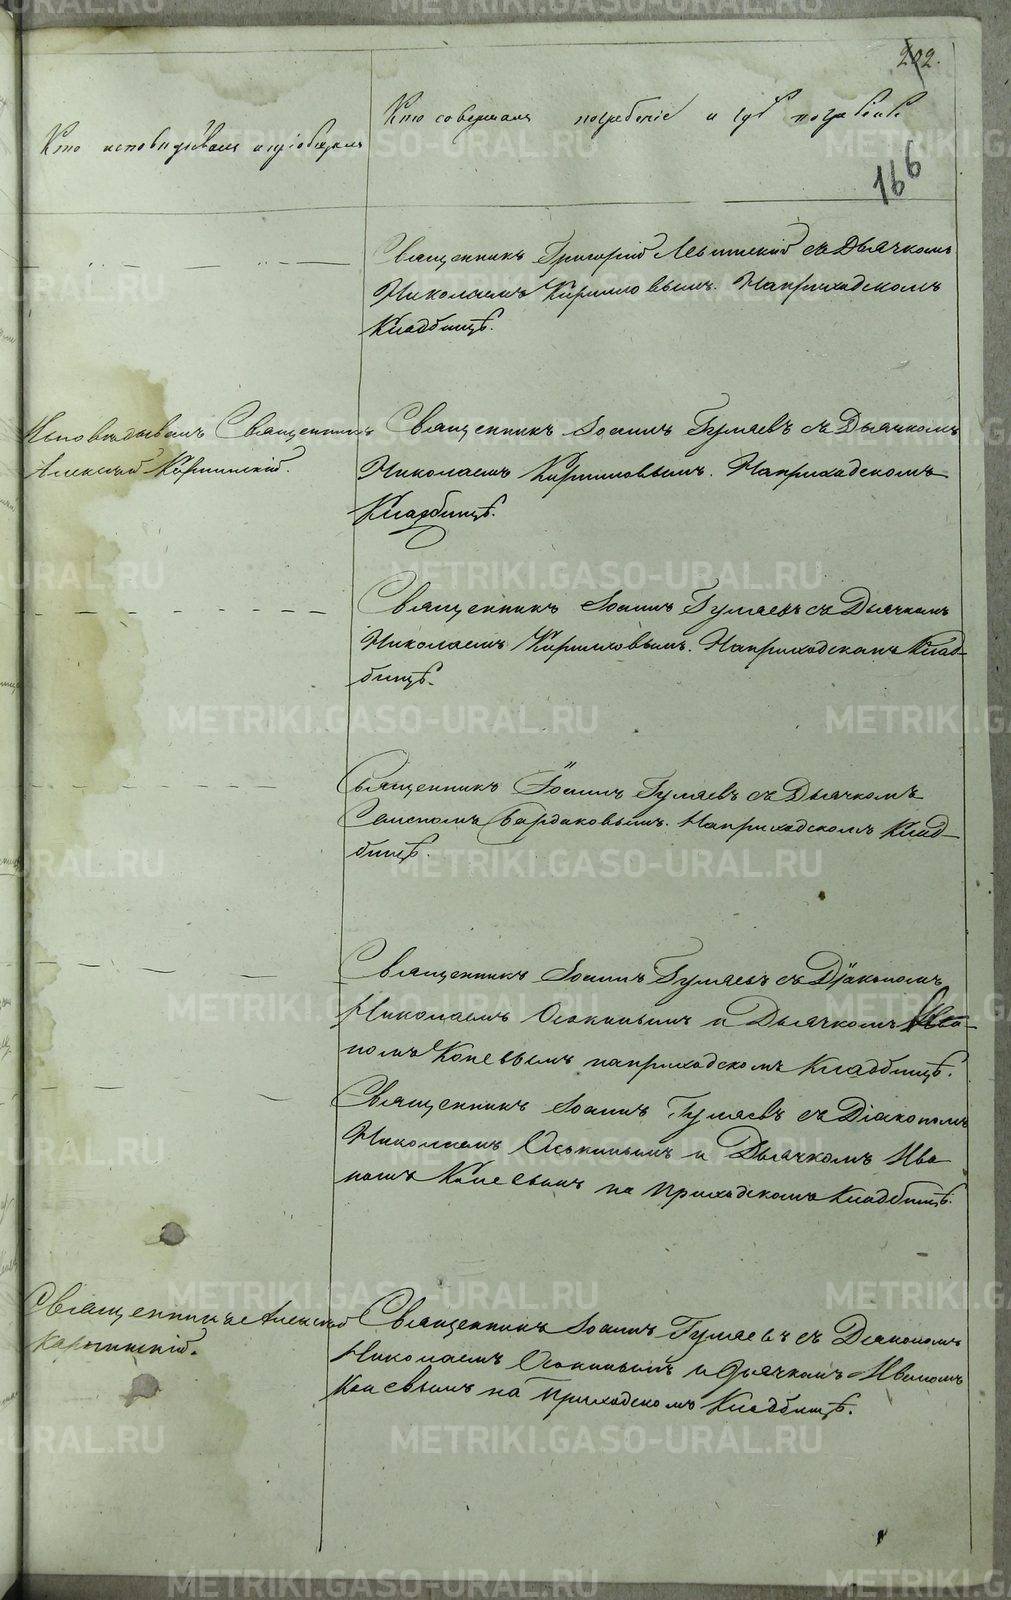 202.
166
Кто исповѣдывалъ и пріобщалъ
Кто совершалъ погребеніе и гдѣ погребены
Священникъ Григорій Левитскій съ Дьячкомъ
Николаемъ Кирилловымъ. На приходскомъ
Кладбищѣ.
Исповѣдывалъ Священникъ
Алексѣй
Священникъ Іоаннъ Гуляевъ съ Дьячкомъ
Николаемъ Кирилловымъ. На приходскомъ
Кладбищѣ.
Священникъ Іоаннъ Гуляевъ съ Дьячкомъ
Николаемъ Кирилловымъ. На приходскомъ Клад-
бищѣ.
Священникъ Іоаннъ Гуляевъ съ Дьячкомъ
Бардаковымъ. На приходскомъ Клад-
бищѣ.
Священникъ Іоаннъ Гуляевъ съ Діакономъ
Николаемъ Осокинымъ и Дьячкомъ Ива-
номъ Коневымъ на приходскомъ Кладбищѣ.
Священникъ Іоаннъ Гуляевъ съ Діакономъ
Николаемъ Осокинымъ и Дьячкомъ Ива
номъ Коневымъ на приходскомъ Кладбищѣ.
Священникъ Алексѣй
Священникъ Іоаннъ Гуляевъ съ Діакономъ
Николаемъ Осокинымъ и Дьячкомъ Иваномъ
Коневымъ на приходскомъ Кладбищѣ.
METRIKI.GASO-URAL.RU